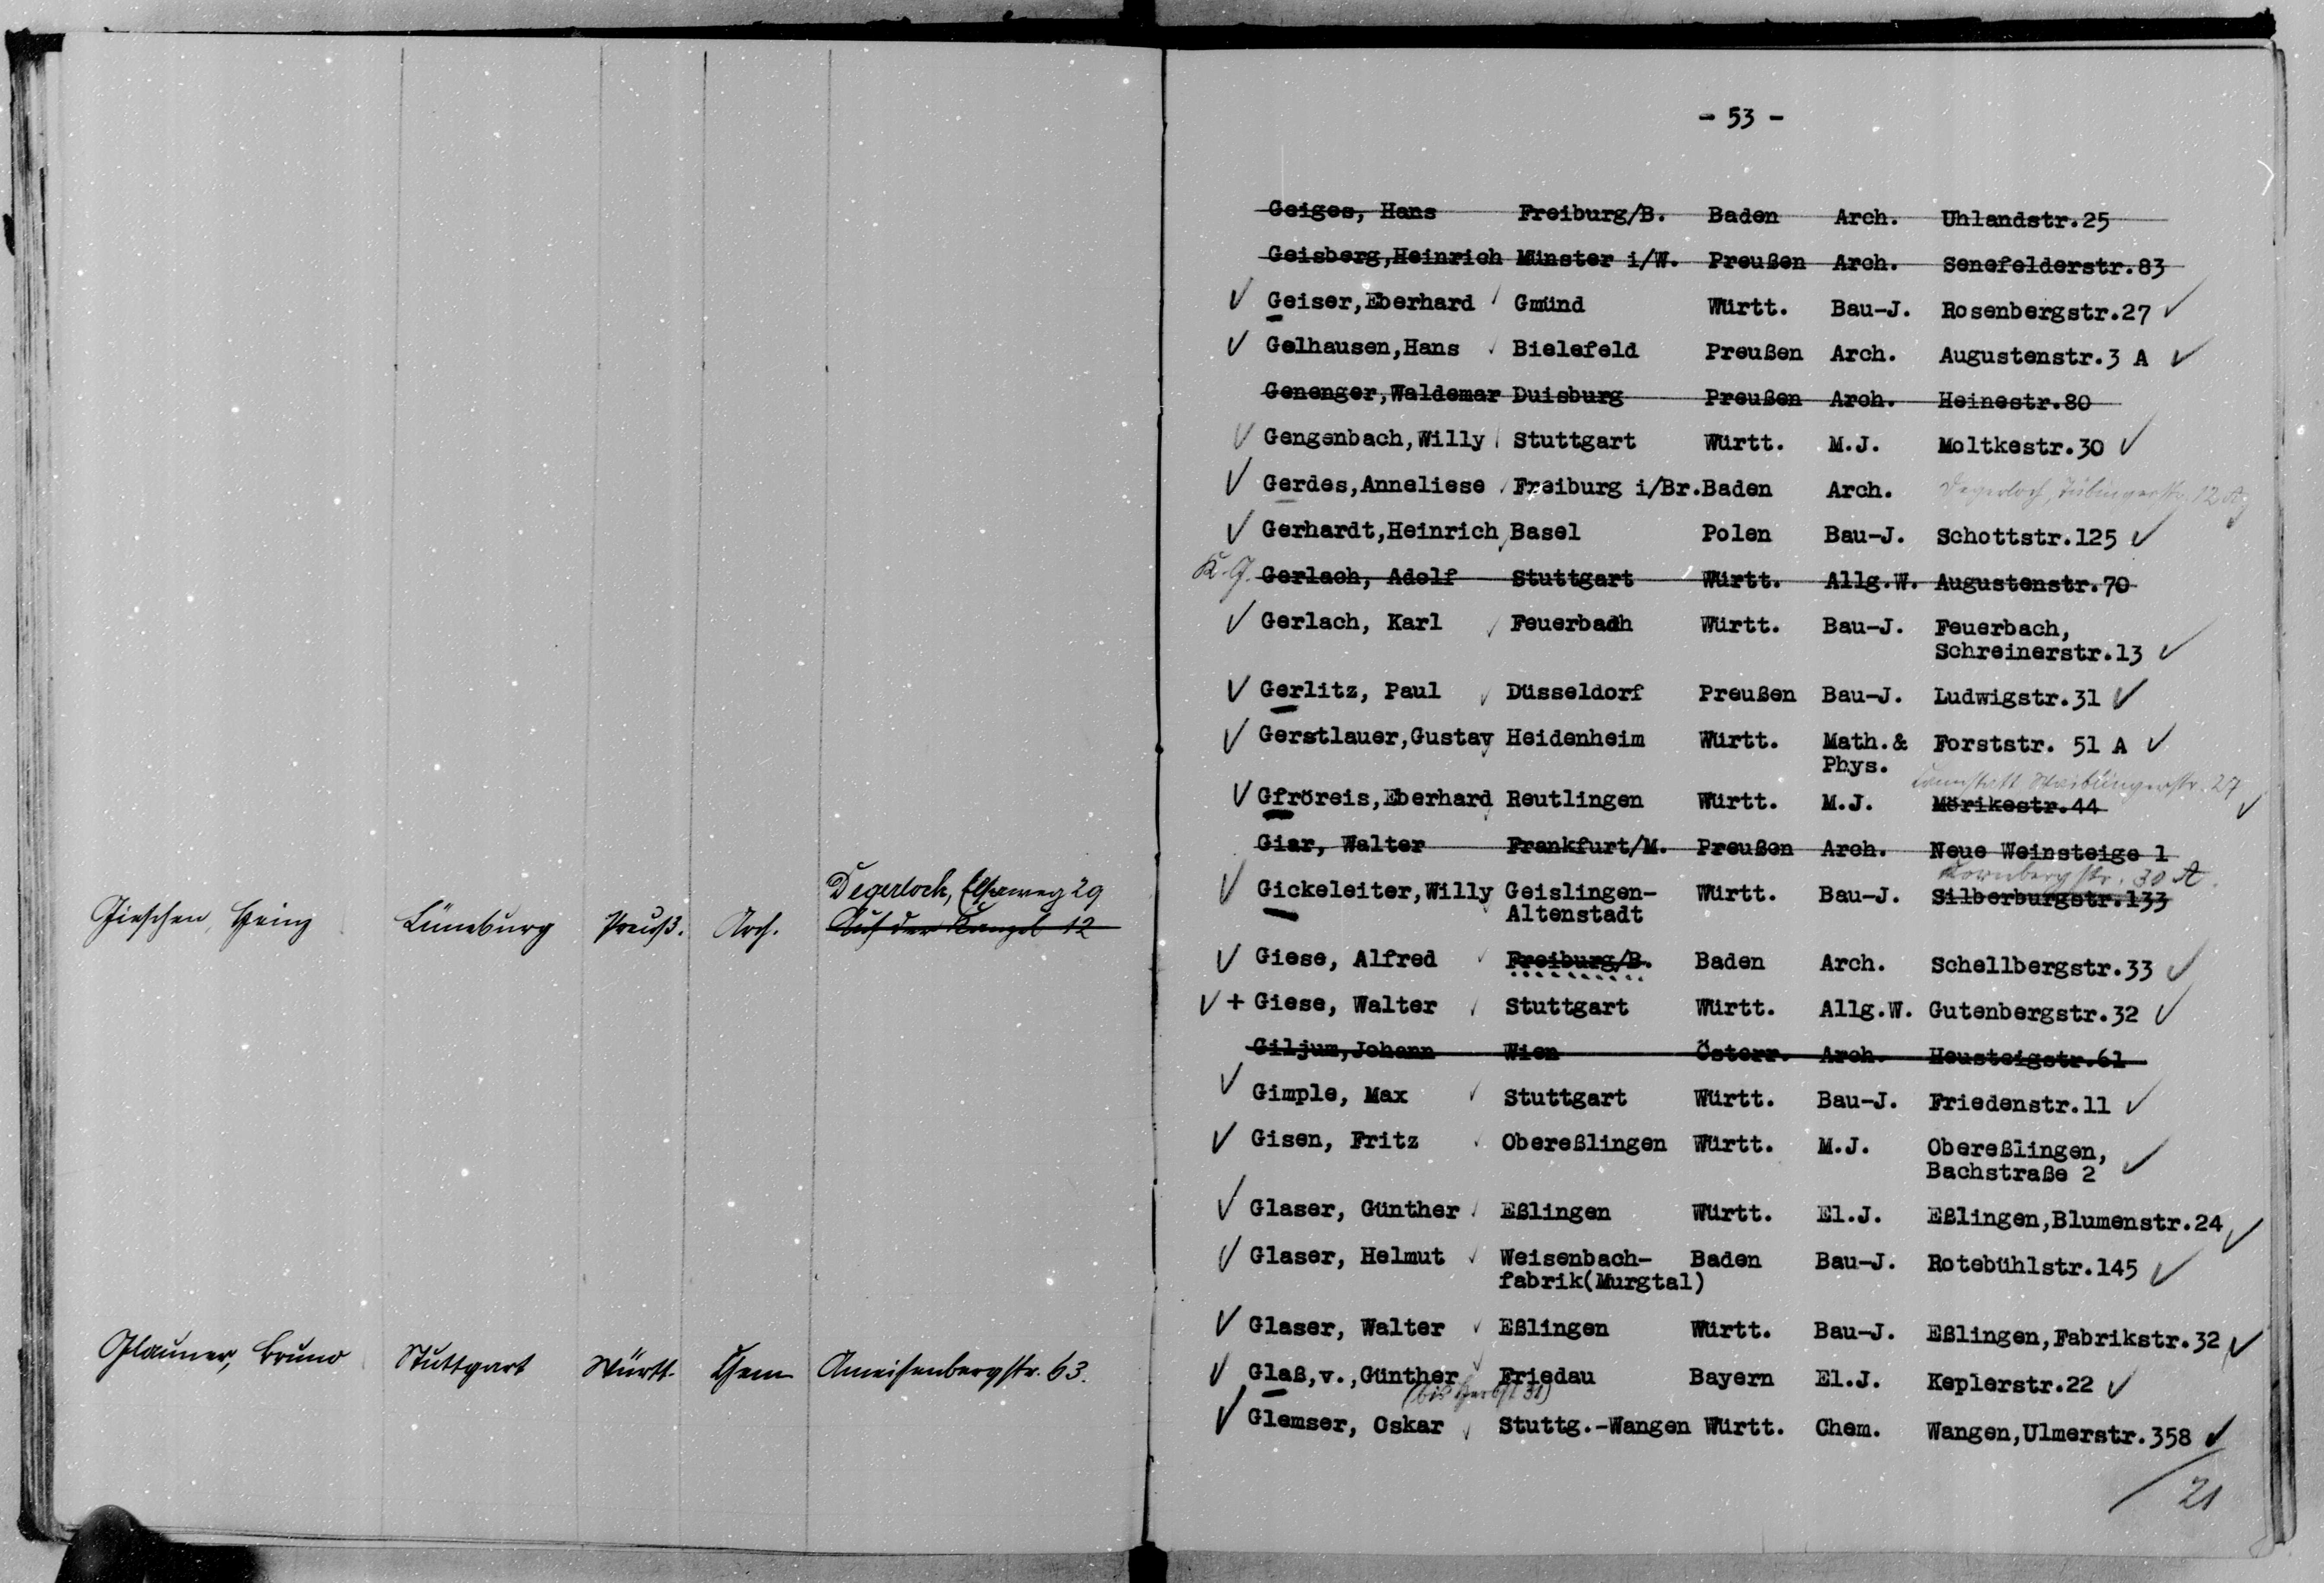 Gieschen, Heinz Lüneburg Preuß. Arch. Degerloch, 29
Auf der Kanzel 12
Glauner, Bruno Stuttgart Württ. Chem Ameisenbergstr. 63.
- 53 -
Geiges, Hans Freiburg/B. Baden Arch. Uhlandstr.25
Geisberg,Heinrich Münster i/W. Preußen Arch. Senefelderstr.83
✓ Geiser,Eberhard ✓ Gmünd Württ. Bau-J. Rosenbergstr.27 ✓
✓ Gelhausen,Hans ✓ Bielefeld Preußen Arch. Augustenstr.3 A ✓
Genenger,Waldemar Duisburg Preußen Arch. Heinestr.80
✓ Gengenbach,Willy ✓ Stuttgart Württ. M.J. Moltkestr.30 ✓
✓ Gerdes,Anneliese ✓ Freiburg i/Br.Baden Arch. Degerloch, Tübingerstr. 12
✓ Gerhardt,Heinrich ✓ Basel Polen Bau-J. Schottstr.125 ✓
K.G. Gerlach, Adolf Stuttgart Württ. Allg.W. Augustenstr.70
✓ Gerlach, Karl ✓ Feuerbach Württ. Bau-J. Feuerbach,
Schreinerstr.13 ✓
✓ Gerlitz, Paul ✓ Düsseldorf Preußen Bau-J. Ludwigstr.31 ✓
✓ Gerstlauer,Gustav ✓ Heidenheim Württ. Math.& Forststr. 51 A ✓
Phys.
Cannstatt Waiblingerstr. 27
✓ Gfröreis,Eberhard ✓ Reutlingen Württ. M.J. Mörikestr.44 ✓
Giar, Walter Frankfurt/M. Preußen Arch. Neue Weinsteige 1
Kornbergstr. 30 A.
✓ Gickeleiter,Willy ✓ Geislingen- Württ. Bau-J. Silberburgstr.133
Altenstadt
✓ Giese, Alfred ✓ Freiburg/B. Baden Arch. Schellbergstr.33 ✓
✓ + Giese, Walter ✓ Stuttgart Württ. Allg.W. Gutenbergstr.32 ✓
Giljum,Johann Wien Österr. Arch. Heusteigstr.61
✓ Gimple, Max ✓ Stuttgart Württ. Bau-J. Friedenstr.11 ✓
✓ Gisen, Fritz ✓ Obereßlingen Württ. M.J. Obereßlingen,
Bachstraße 2 ✓
✓ Glaser, Günther ✓ Eßlingen Württ. El.J. Eßlingen,Blumenstr.24 ✓
✓ Glaser, Helmut ✓ Weisenbach- Baden Bau-J. Rotebühlstr.145 ✓
fabrik(Murgtal)
✓ Glaser, Walter ✓ Eßlingen Württ. Bau-J. Eßlingen,Fabrikstr.32 ✓
✓ Glaß,v.,Günther ✓ Friedau Bayern El.J. Keplerstr.22 ✓
(bis Herbst 31)
✓ Glemser, Oskar ✓ Stuttg.-Wangen Württ. Chem. Wangen,Ulmerstr.358 ✓
21